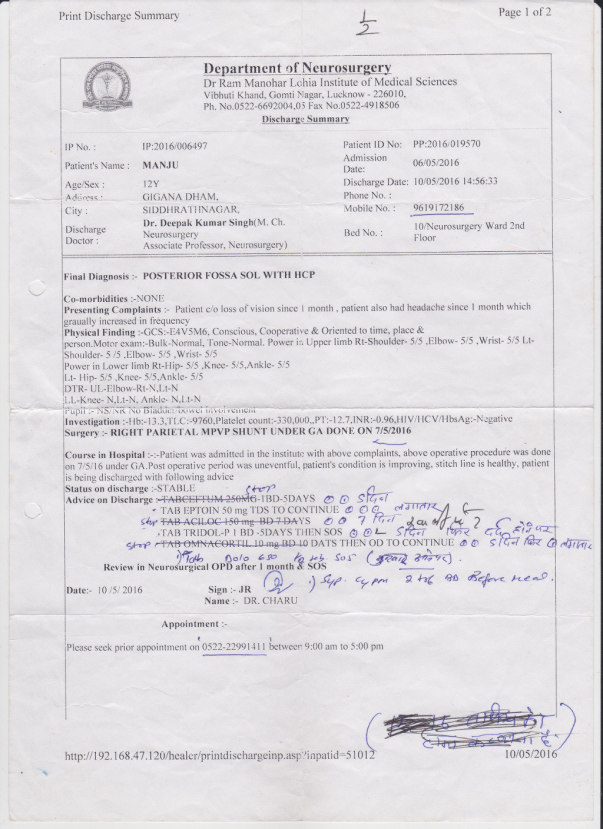 Print Discharge Summary
1/2
Page 1 of 2
Department of Neurosurgery
Dr Ram Manohar Lohia Institute of Medical Sciences
Vibhuti Khand, Gomti Nagar, Lucknow - 226010,
Ph. No.0522-6692004,05 Fax No.0522-4918506
Discharge Summary
IP No. : IP:2016/006497 Patient ID No: PP:2016/019570
Patient's Name : MANJU Admission Date: 06/05/2016
Age/Sex : 12Y Discharge Date: 10/05/2016 14:56:33
Address : GIGANA DHAM, Phone No. :
City : SIDDHRATHNAGAR, Mobile No. : 9619172186
Discharge Doctor : Dr. Deepak Kumar Singh(M. Ch. Neurosurgery Associate Professor, Neurosurgery) Bed No. : 10/Neurosurgery Ward 2nd Floor
Final Diagnosis :- POSTERIOR FOSSA SOL WITH HCP
Co-morbidities :-NONE
Presenting Complaints :- Patient c/o loss of vision since 1 month , patient also had headache since 1 month which
graually increased in frequency
Physical Finding :-GCS:-E4V5M6, Conscious, Cooperative & Oriented to time, place &
person.Motor exam:-Bulk-Normal, Tone-Normal. Power in Upper limb Rt-Shoulder- 5/5 ,Elbow- 5/5 ,Wrist- 5/5 Lt-
Shoulder- 5 /5 ,Elbow- 5/5 ,Wrist- 5/5
Power in Lower limb Rt-Hip- 5/5 ,Knee- 5/5,Ankle- 5/5
Lt- Hip- 5/5 ,Knee- 5/5,Ankle- 5/5
DTR- UL-Elbow-Rt-N,Lt-N
LL-Knee- N,Lt-N, Ankle- N,Lt-N
Pupil :- NS/NR No Bladder/bowel involvement
Investigation :-Hb:-13.3,TLC:-9760,Platelet count:-330,000,,PT:-12.7,INR:-0.96,HIV/HCV/HbsAg:-Negative
Surgery :- RIGHT PARIETAL MPVP SHUNT UNDER GA DONE ON 7/5/2016
Course in Hospital :--Patient was admitted in the institute with above complaints, above operative procedure was done
on 7/5/16 under GA.Post operative period was uneventful, patient's condition is improving, stitch line is healthy, patient
is being discharged with following advice
Status on discharge :-STABLE
Stop
Advice on Discharge :-TABCEFTUM 250MG-1BD-5DAYS 5 दिन
TAB EPTOIN 50 mg TDS TO CONTINUE लगातार
Stop TAB ACILOC 150 mg BD 7 DAYS 7 दिन
TAB TRIDOL-P 1 BD -5DAYS THEN SOS 5 दिन फिर दर्द होने पर
Stop TAB OMNACORTIL 10 mg BD 10 DATS THEN OD TO CONTINUE 5 दिन फिर लगातार
Tab Dolo 650 SOS
Review in Neurosurgical OPD after 1 month & SOS
Syp. Cypon 2 tsf BD Before meal.
Date:- 10 /5/ 2016 Sign :- JR
Name :- DR. CHARU
Appointment :-
Please seek prior appointment on 0522-22991411 between 9:00 am to 5:00 pm
http://192.168.47.120/healer/printdischargeinp.asp?inpatid=51012 10/05/2016